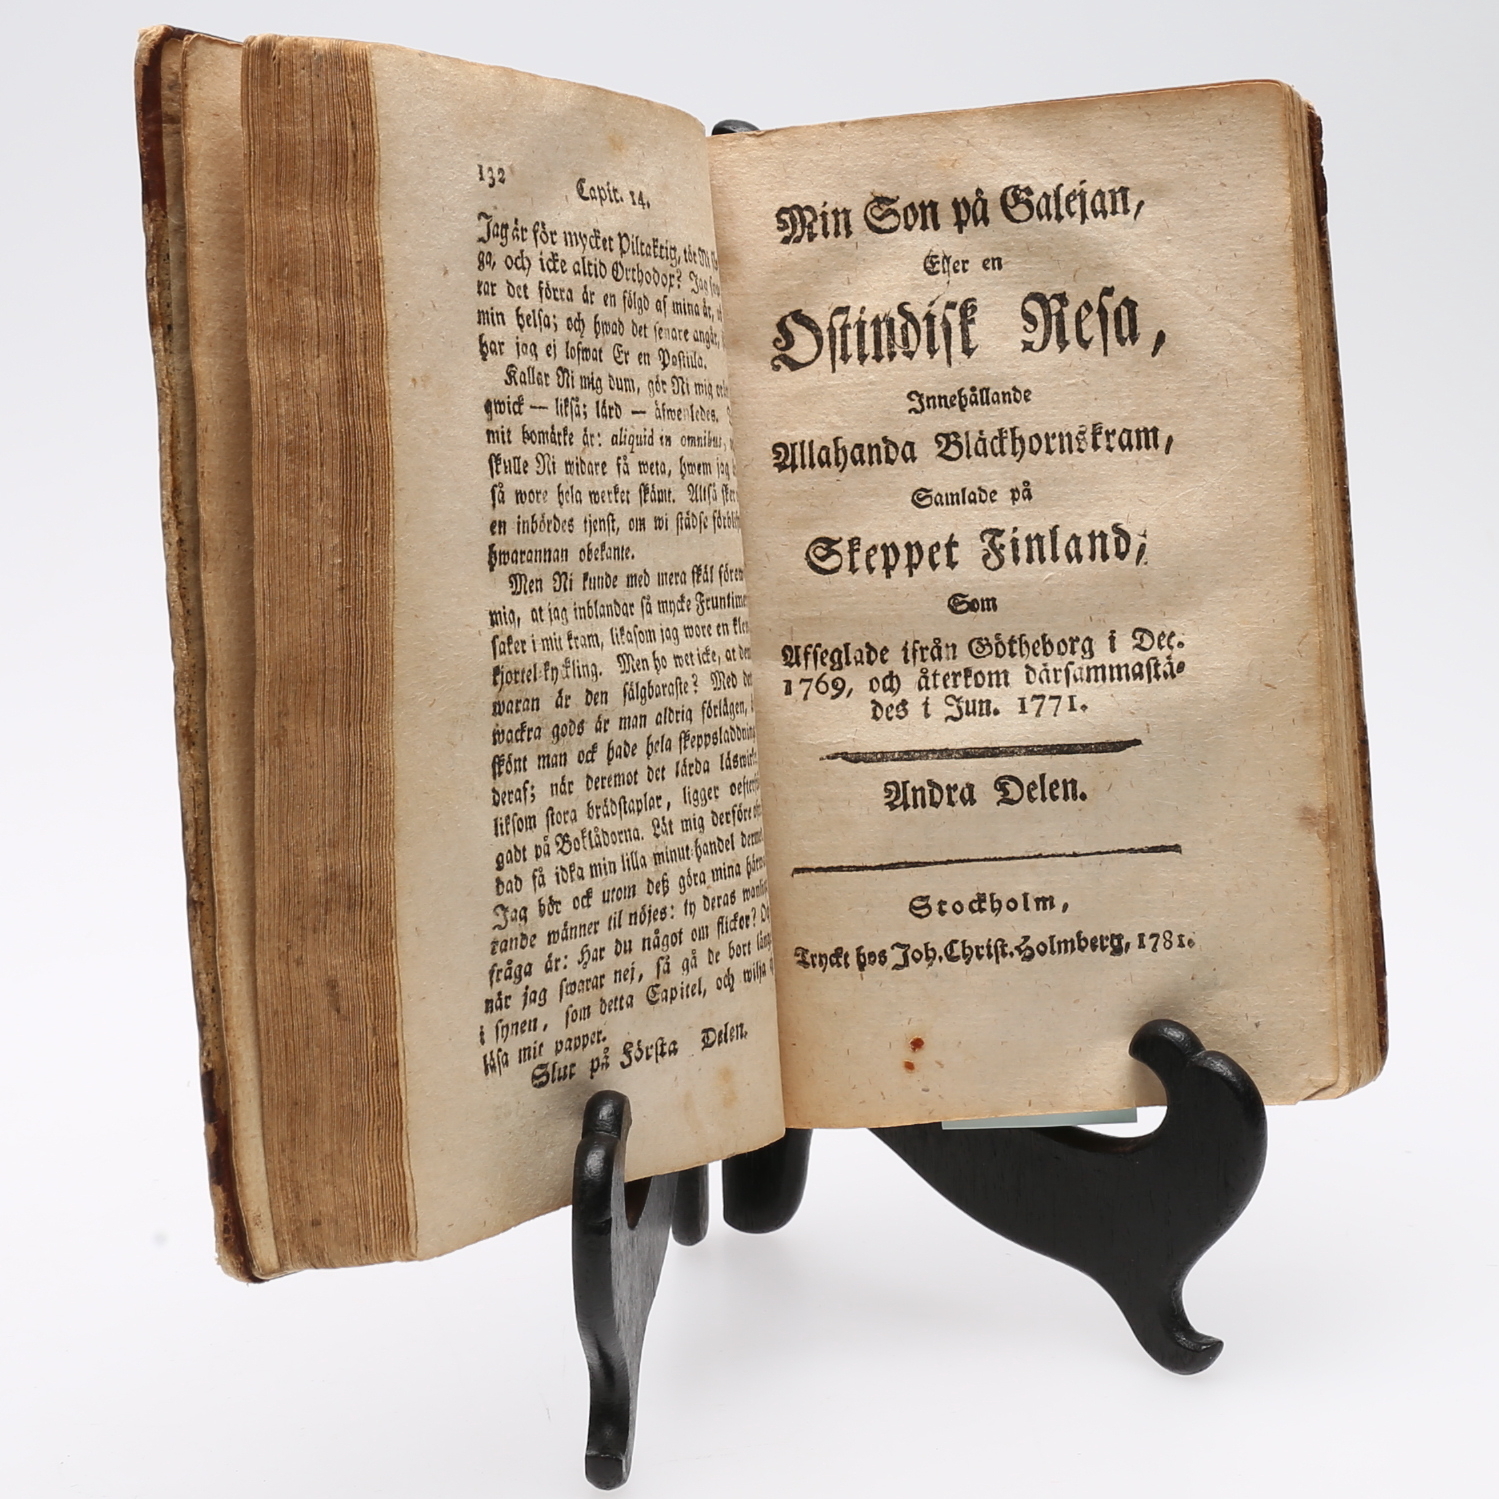 132
Capit. 14.
Jag är för mycket Piltaktig, tör Ni
ga, och icke altid Orthodox? Jag
rar det förra är en fölgd af mina år,
min helsa; och hwad det senare angår,
har jag ej lofwat Er en Postilla.
Kallar Ni mig dum, gör Ni mig
qwick — likså; lärd — äfwenledes.
mit bomärke är: aliquid in omnibus,
skulle Ni widare få weta, hwem jag
så wore hela werket skämt. Altså
en inbördes tjenst, om wi städse
hwarannan obekante.
Men Ni kunde med mera skäl
mig, at jag inblandar så mycke
saker i mit kram, likasom jag wore en
kjortel-kyckling. Men ho wet icke, at
waran är den sälgbaraste? Med
wackra gods är man aldrig förlägen,
skönt man ock hade hela
deraf; när deremot det lärda
liksom stora brädstaplar, ligger
gadt på Boklådorna. Låt mig derföre
dad få idka min lilla minut-handel
Jag bör ock utom deß göra mina
rande wänner til nöjes: ty deras
fråga är: Har du något om flickor?
när jag swarar nej, så gå de bort
i synen, som detta Capitel, och wilja
läsa mit papper.
Slut på Första Delen.
Min Son på Galejan,
Eller en
Ostindisk Resa,
Innehållande
Allahanda Bläckhornskram,
Samlade på
Skeppet Finland,
Som
Afseglade ifrån Götheborg i Dec.
1769, och återkom därsammastä-
des i Jun. 1771.
Andra Delen.
Stockholm,
Tryckt hos Joh. Christ. Holmberg, 1781.